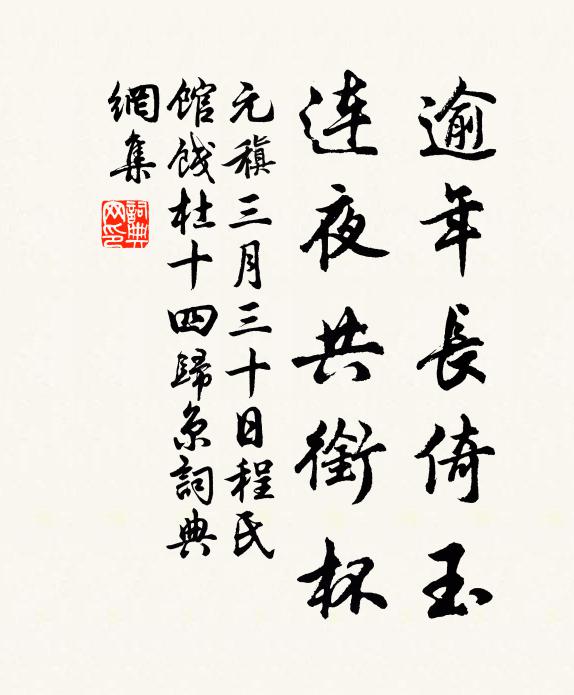 逾年長倚玉
連夜共銜杯
元稹三月三十日程氏
館餞杜十四歸京詞典
網集
詞典
网印